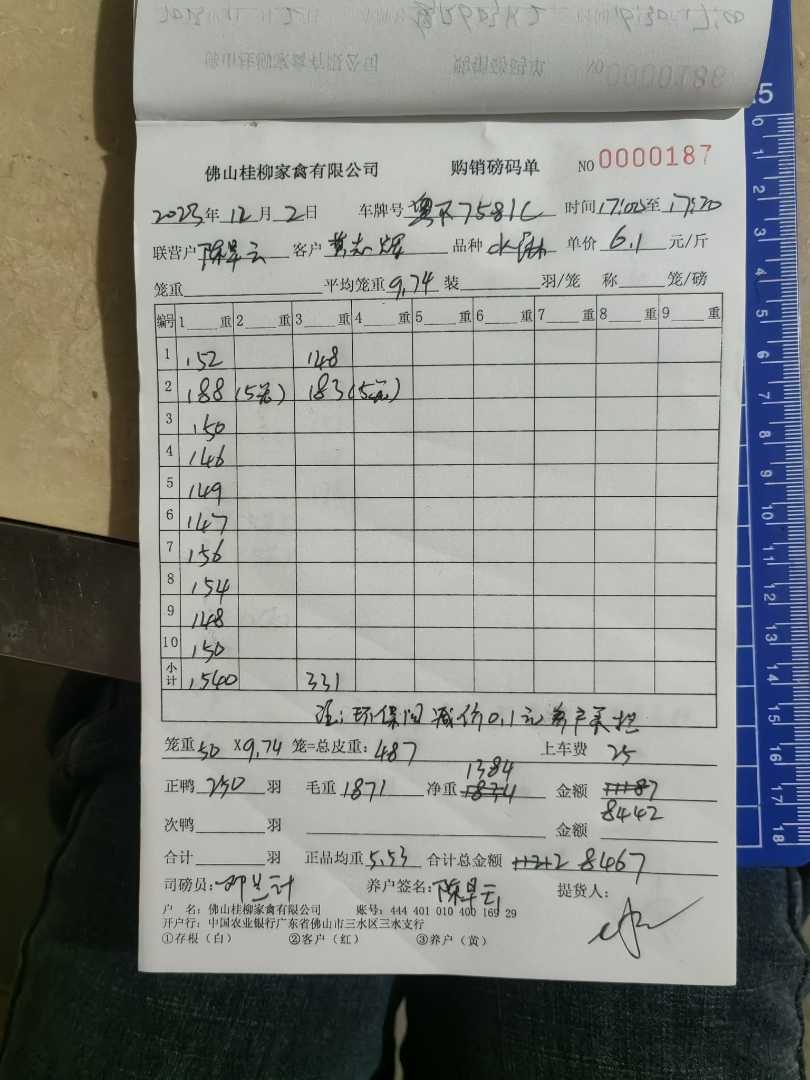 佛山桂柳家禽有限公司 购销磅码单 NO 0000187
2023年12月2日 车牌号 7581C 时间17:00至17:20
联营户 陈旱云 客户 黄志辉 品种 单价 6.1 元/斤
笼重 平均笼重 9.74 装 羽/笼 称 笼/磅
编号 1 重 2 重 3 重 4 重 5 重 6 重 7 重 8 重 9 重
1 152 148
2 188 (5笼) 183 (5笼)
3 150
4 146
5 149
6 147
7 156
8 154
9 148
10 150
小计 1540 331
注: 环保 减价0.1元 养户承担
笼重 50 X9.74 笼=总皮重: 487 上车费 25
1384
正鸭 250 羽 毛重 1871 净重 1834 金额 11187
8442
次鸭 羽 金额
合计 羽 正品均重 5.53 合计总金额 11212 8467
司磅员: 养户签名: 陈旱云 提货人:
户 名: 佛山桂柳家禽有限公司 账号: 444 401 010 400 169 29
开户行: 中国农业银行广东省佛山市三水区三水支行
①存根(白) ②客户(红) ③养户(黄)
5
0
1
2
3
4
5
6
7
8
9
10
11
12
13
14
15
16
17
18